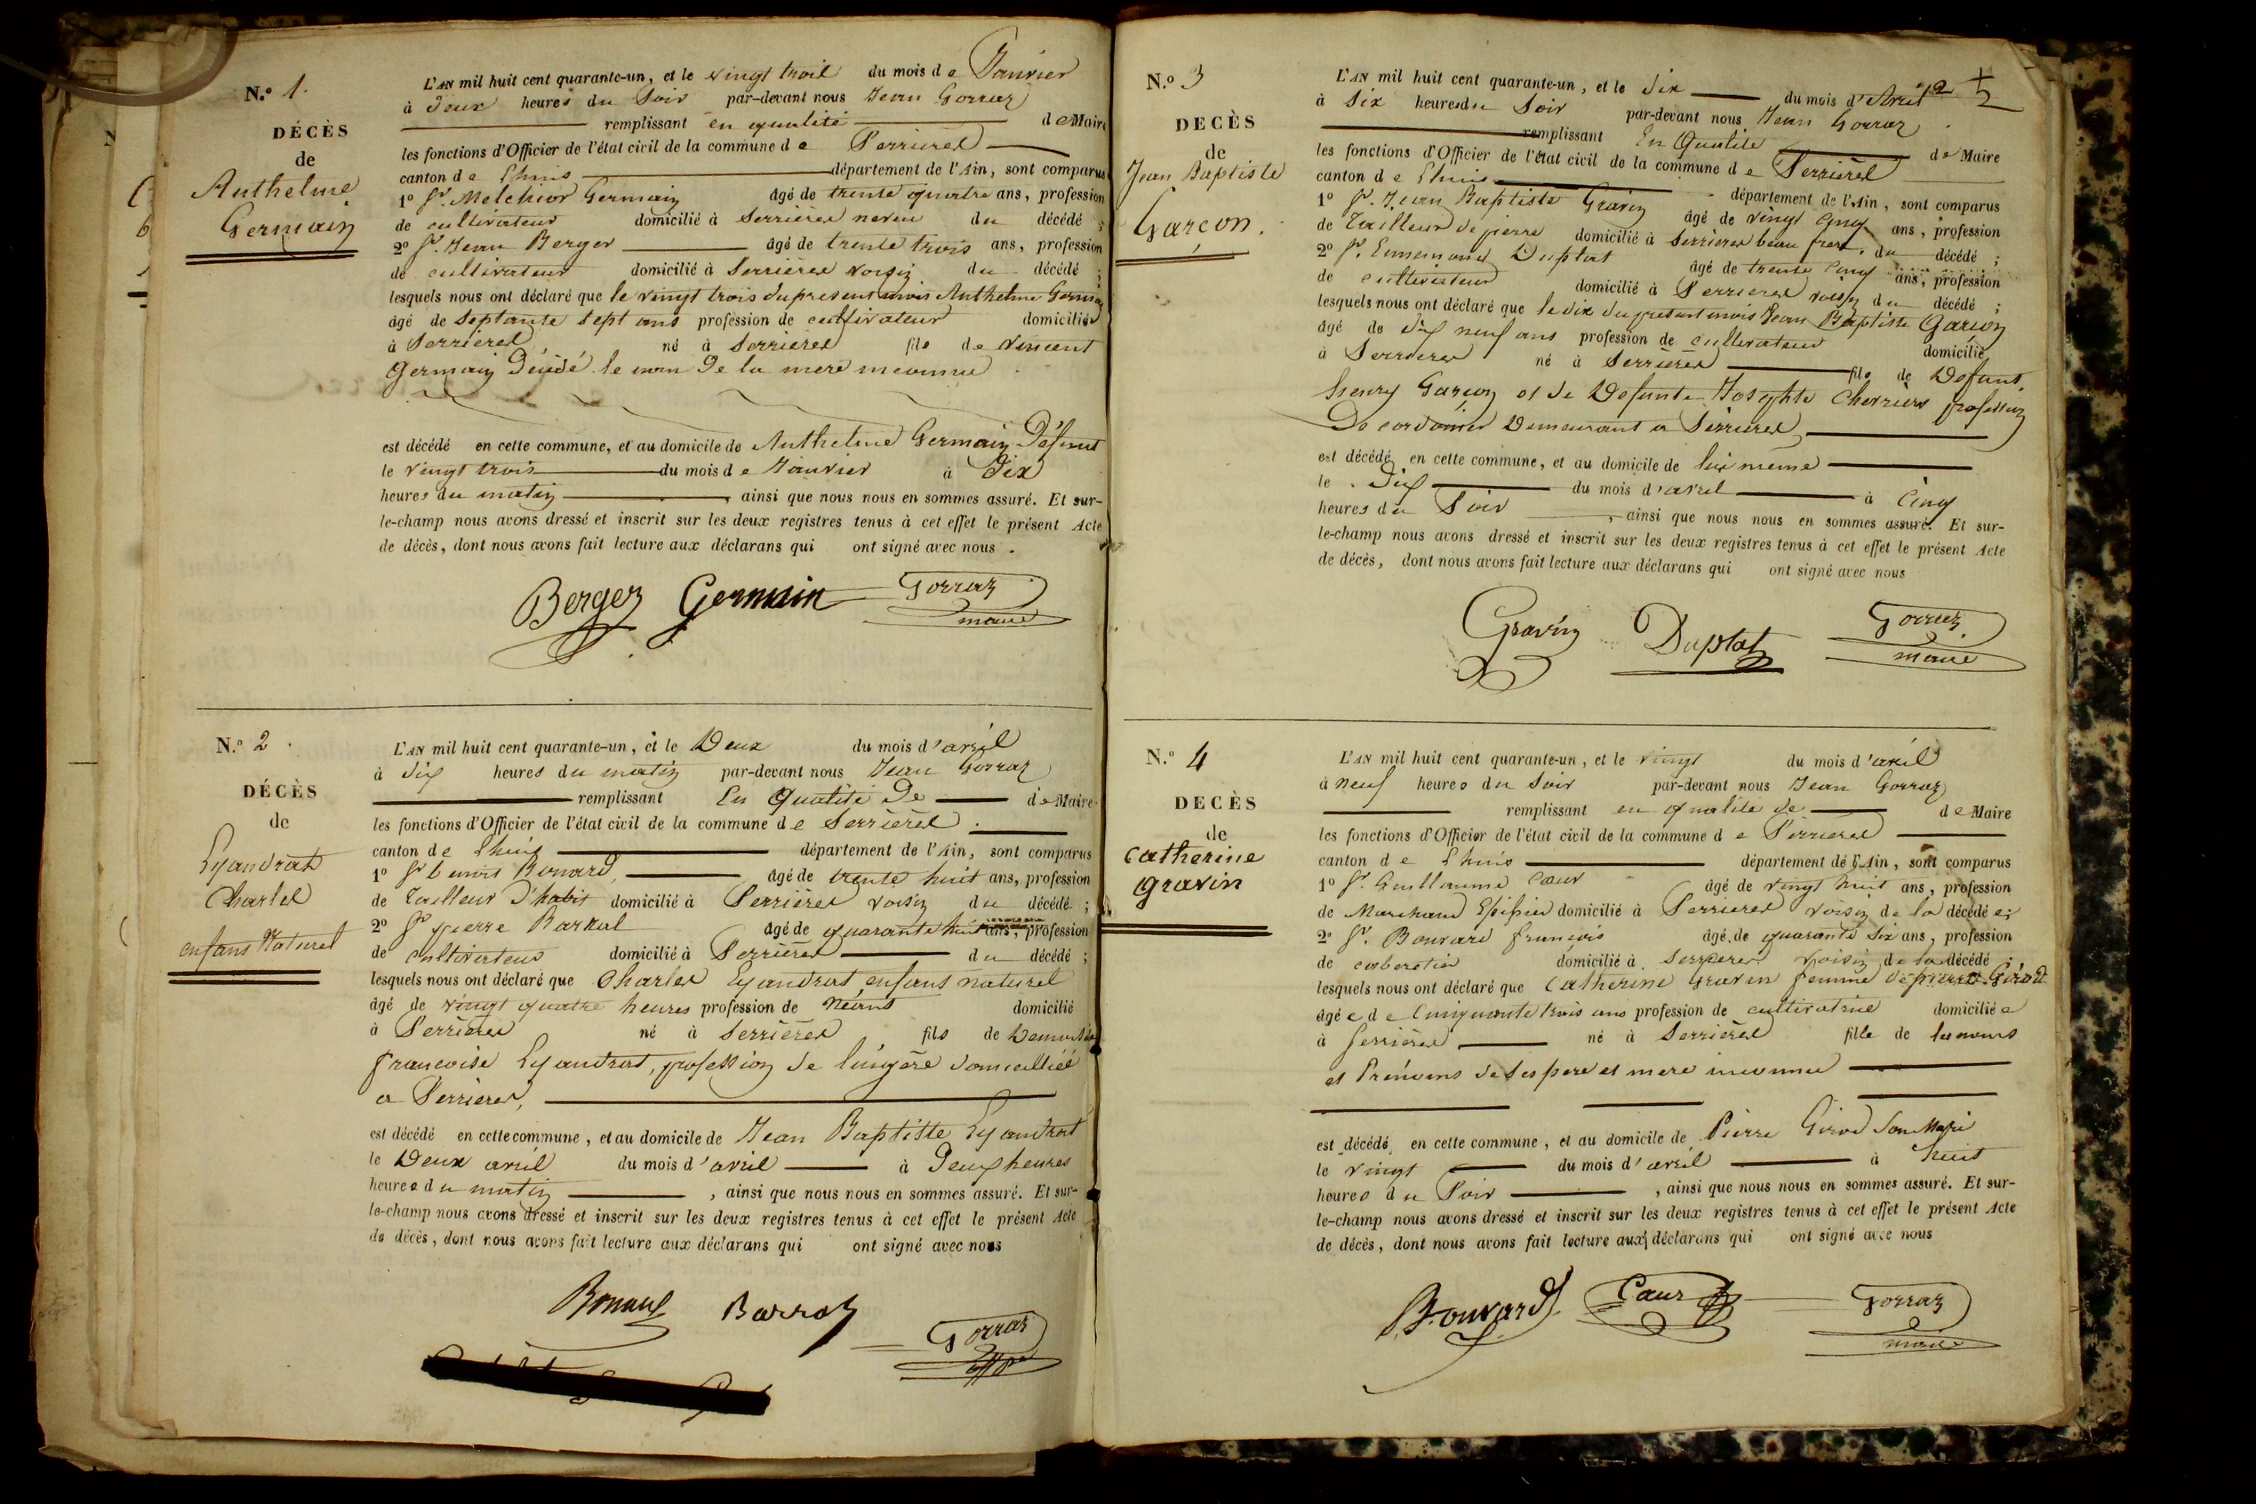 N.º 1.
DÉCÈS
de
Anthelme
Germain
L'AN mil huit cent quarante-un, et le vingt trois du mois de Janvier
à deux heures du Soir par-devant nous Jean Gorraz
remplissant en qualité de Maire
les fonctions d'Officier de l'état civil de la commune de Serrieres
canton de Lhuis département de l'Ain, sont comparus
1º Sr. Melchior Germain âgé de trente quatre ans, profession
de cultivateur domicilié à Serrières neveu du décédé ;
2º Sr. Jean Berger âgé de trente trois ans, profession
de cultivateur domicilié à Serrières voisin du décédé ;
lesquels nous ont déclaré que le vingt trois du present mois Anthelme Germain
âgé de Septante Sept ans profession de cultivateur domicilié
à Serrieres né à Serrières fils de Vincent
Germain Décédé le nom de la mere inconnu
est décédé en cette commune, et au domicile de Anthelme Germain Défunt
le vingt trois du mois de Janvier à Dix
heures du matin, ainsi que nous nous en sommes assuré. Et sur-
le-champ nous avons dressé et inscrit sur les deux registres tenus à cet effet le présent Acte
de décès, dont nous avons fait lecture aux déclarans qui ont signé avec nous.
Berger Germain Gorraz
maire
N.º 2.
DÉCÈS
de
Eyandrat
Charles
enfans Naturel
L'AN mil huit cent quarante-un, et le Deux du mois d'avril
à dix heures du matin par-devant nous Jean Gorraz
remplissant En Qualité De de Maire
les fonctions d'Officier de l'état civil de la commune de Serrières.
canton de Lhuis département de l'Ain, sont comparus
1º Sr Bouvard, âgé de trente huit ans, profession
de Tailleur D'habit domicilié à Serrières voisin du décédé ;
2º Sr pierre âgé de quarante huit ans, profession
de cultivateur domicilié à Serrières du décédé ;
lesquels nous ont déclaré que Charles Eyandrat enfans naturel
âgé de vingt quatre heures profession de néant domicilié
à Serrieres né à Serrières fils de Demoiselle
francoise Eyandrat, profession de lingère domicilliéé
a Serrieres,
est décédé en cette commune, et au domicile de Jean Baptiste Eyandrat
le Deux avril du mois d'avril à Deux heures
heures du matin, ainsi que nous nous en sommes assuré. Et sur-
le-champ nous avons dressé et inscrit sur les deux registres tenus à cet effet le présent Acte
de décès, dont nous avons fait lecture aux déclarans qui ont signé avec nous
Barral
Gorraz
N.º 3
DECÈS
de
Jean Baptiste
Garcon.
2
L'AN mil huit cent quarante-un, et le dix du mois d'Avril
à Six heures du Soir par-devant nous Jean Gorraz
remplissant En Qualité de Maire
les fonctions d'Officier de l'état civil de la commune de Serrières
canton de Lhuis département de l'Ain, sont comparus
1º Sr. Jean Baptiste Gravin âgé de vingt cinq ans, profession
de Tailleur de pierre domicilié à Serrieres beau frere, du décédé ;
2º Sr. Ennemond Duplat âgé de trente cinq ans, profession
de cultivateur domicilié à Serrieres voisin du décédé ;
lesquels nous ont déclaré que le dix du present mois Jean Baptiste Garcon
âgé de dix neuf ans profession de cultivateur domicilié
à Serrieres né à Serrières fils de Defunt
henry Garcon et de Defunte Josephte profession
De cordonier Demeurant a Serrieres
est décédé en cette commune, et au domicile de lui même
le Dix du mois d'avril à Cinq
heures du Soir, ainsi que nous nous en sommes assuré. Et sur-
le-champ nous avons dressé et inscrit sur les deux registres tenus à cet effet le présent Acte
de décès, dont nous avons fait lecture aux déclarans qui ont signé avec nous
Gravin Duplat Gorraz
maire
N.º 4
DECÈS
de
Catherine
gravin
L'AN mil huit cent quarante-un, et le vingt du mois d'avril
à neuf heures du Soir par-devant nous Jean Gorraz
remplissant en qualité de de Maire
les fonctions d'Officier de l'état civil de la commune de Serrieres
canton de Lhuis département de l'Ain, sont comparus
1º Sr. Guillaume Cœur âgé de vingt huit ans, profession
de Marchand Epicier domicilié à Serrieres voisin de la décédée ;
2º Sr. Bouvard francois âgé de quarante Six ans, profession
de cabaretier domicilié à Serrieres voisin de la décédé ;
lesquels nous ont déclaré que Catherine Gravin femme de pierre Girod
âgée de Cinquante trois ans profession de cultivatrice domiciliée
à Serrieres né à Serrières fille de les noms
et Prénoms de Ses pere et mere inconnu
est décédé en cette commune, et au domicile de Pierre Girod Son Mari
le vingt du mois d'avril à huit
heures du Soir, ainsi que nous nous en sommes assuré. Et sur-
le-champ nous avons dressé et inscrit sur les deux registres tenus à cet effet le présent Acte
de décès, dont nous avons fait lecture aux déclarans qui ont signé avec nous
Bouvard Cœur Gorraz
maire